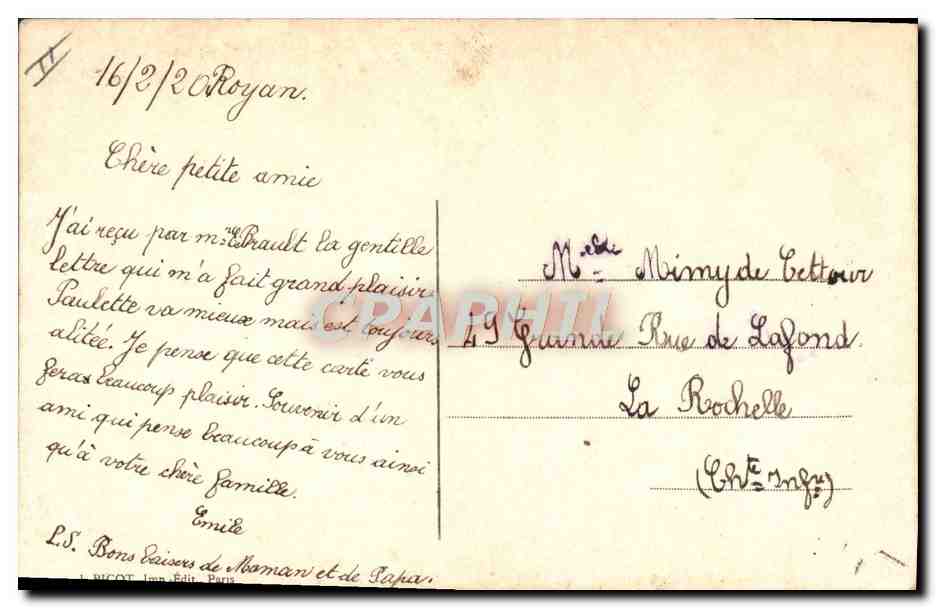 II
16/2/20 Royan.
Chère petite amie
J'ai reçu par mme Brault la gentille
lettre qui m'a fait grand plaisir
Paulette va mieux mais est toujours
alitée. Je pense que cette carte vous
fera beaucoup plaisir. Souvenir d'un
ami qui pense beaucoup à vous ainsi
qu'à votre chère famille.
Emile
P.S. Bons baisers de Maman et de Papa.
J. PICOT, Imp.-Édit., Paris
Melle Mimy de Tettour
49 Grande Rue de Lafond.
La Rochelle
(Chte Infre)
CPAPHIL